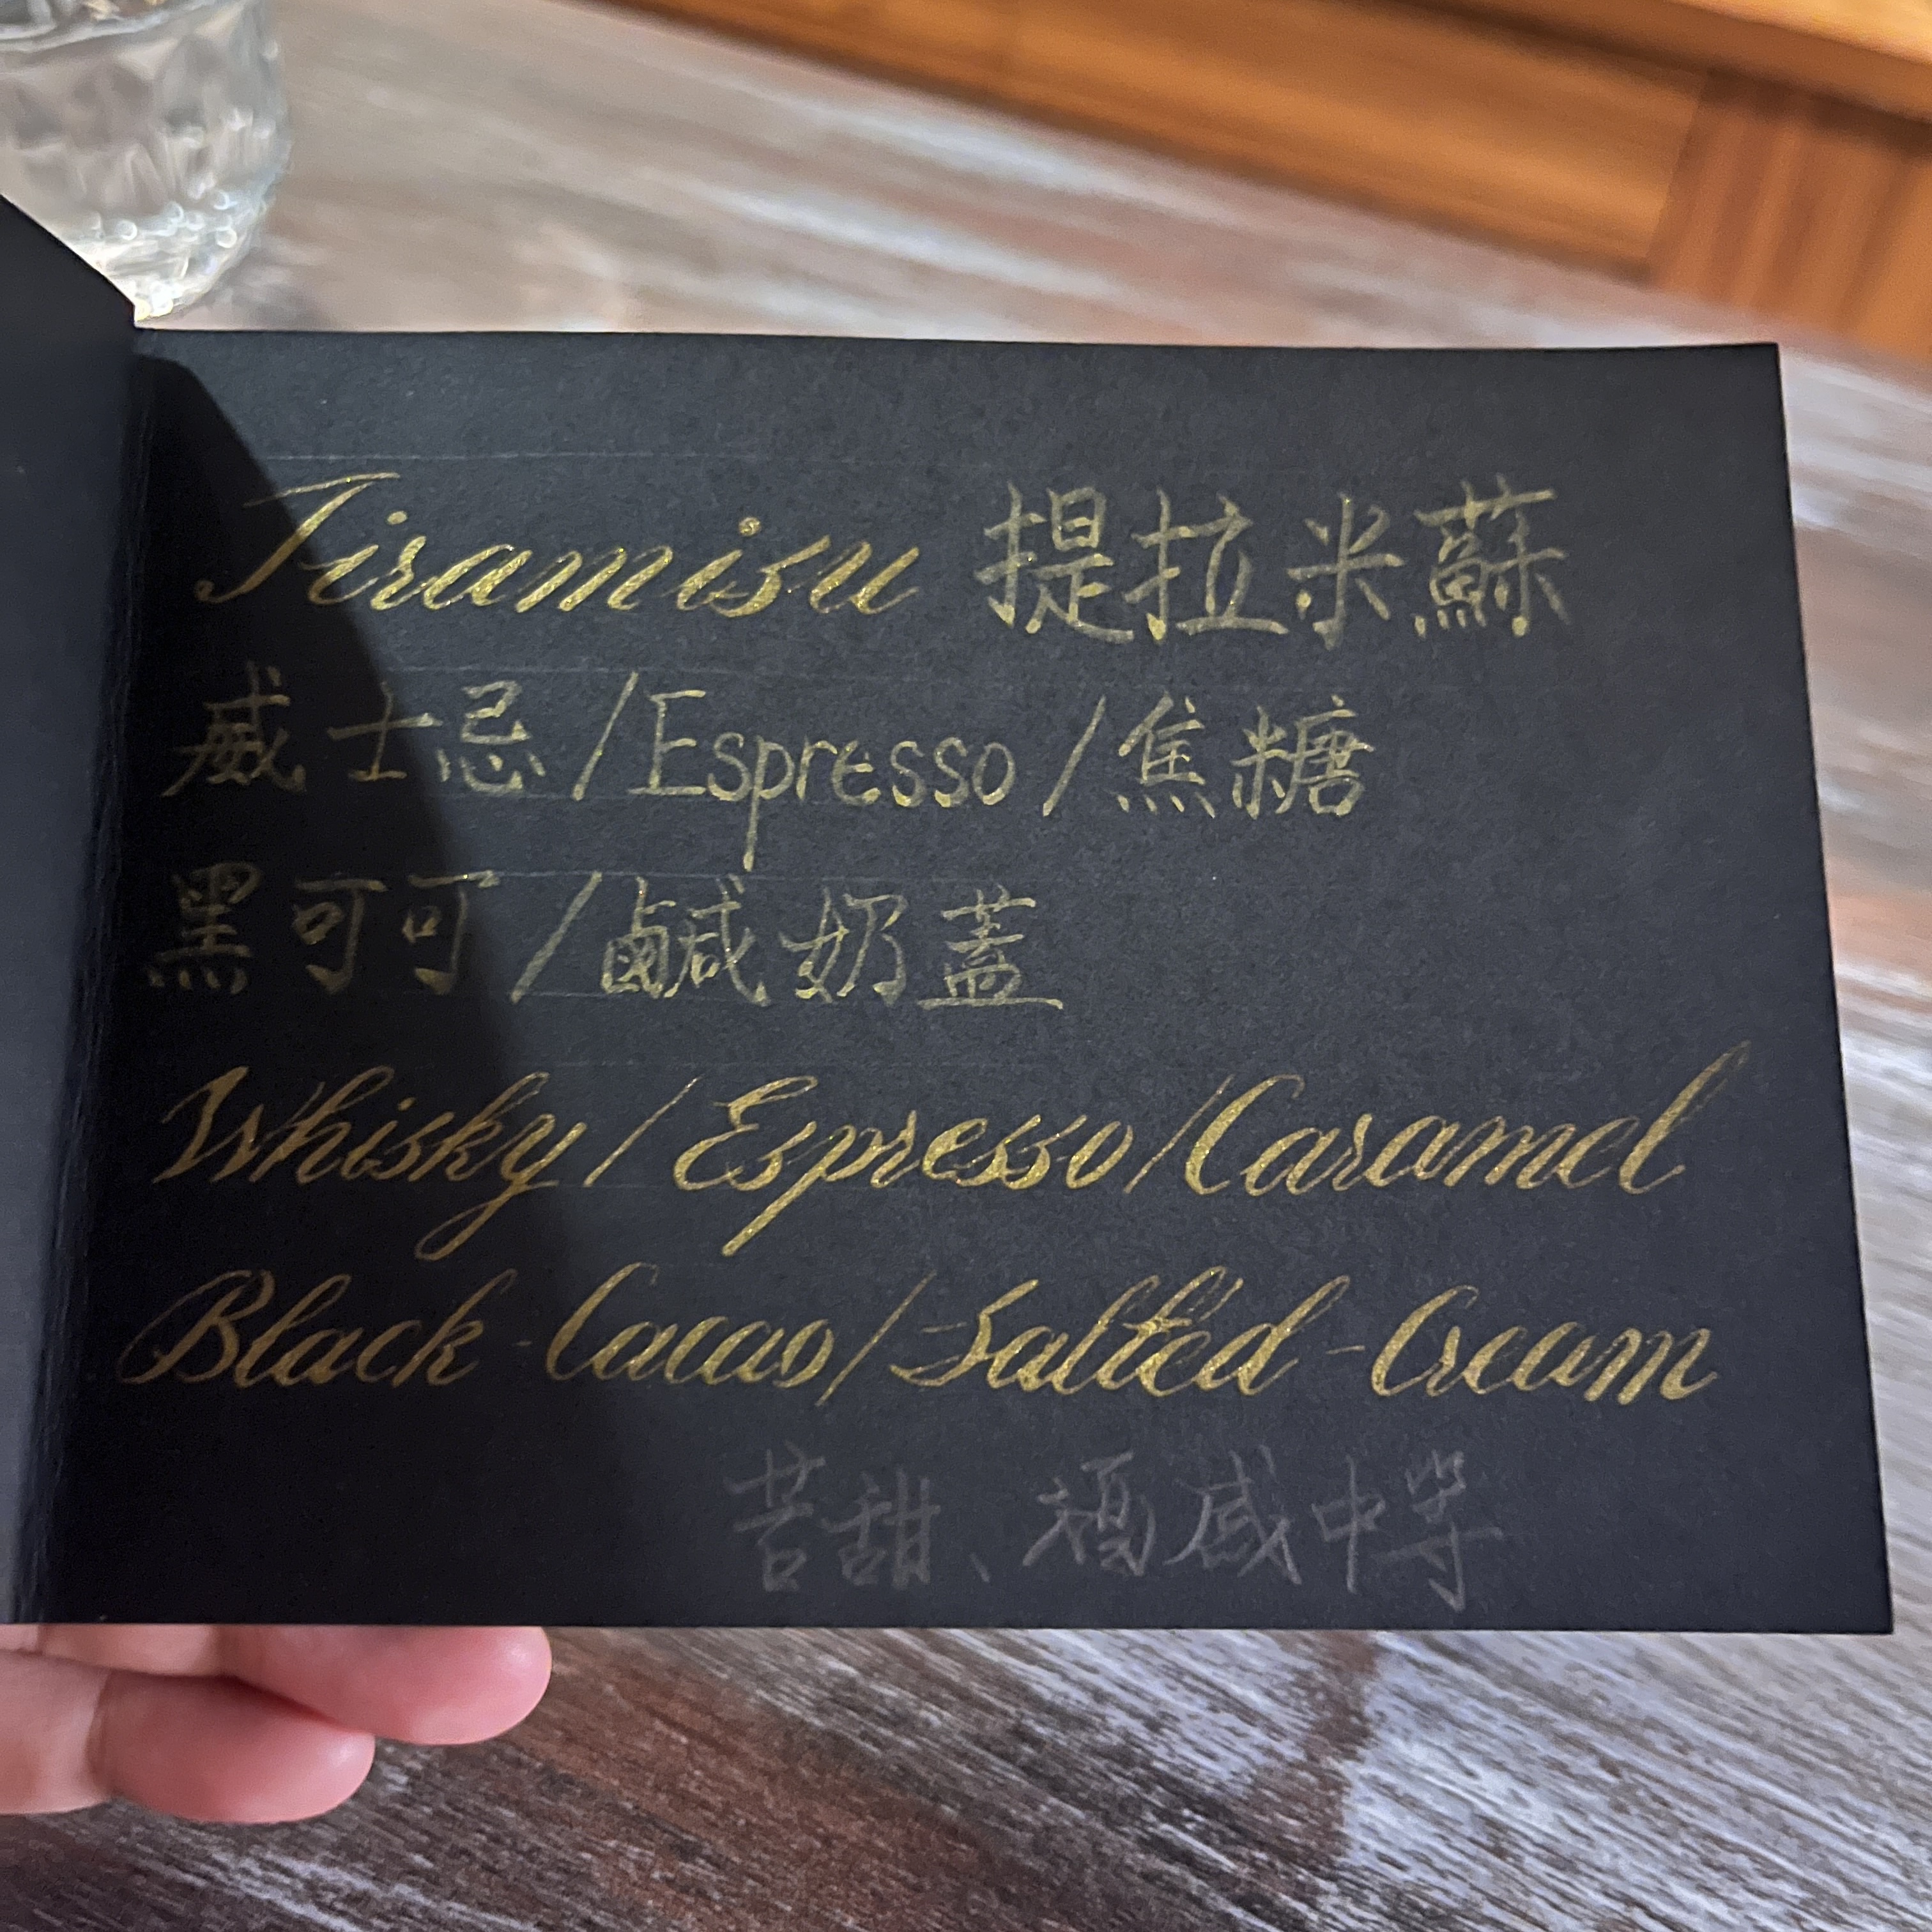 Tiramisu 提拉米蘇
威士忌/Espresso/焦糖
黑可可/鹹奶蓋
Whisky/Espresso/Caramel
Black-Cacao/Salted-Cream
苦甜、酒感中等